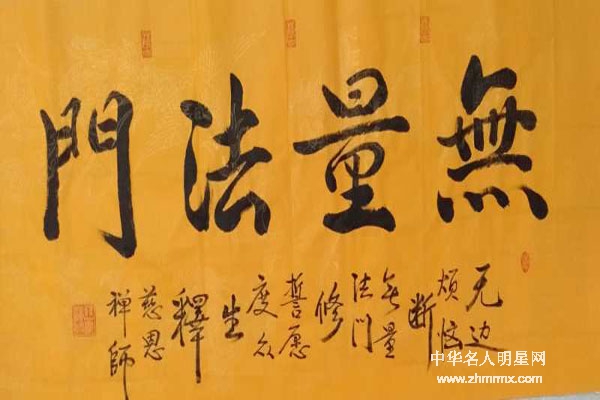 無量法門
无边
烦恼
断
无量
法门
修
誓愿
度众
生
釋
慈恩
禅师
中华名人明星网
www.zhmmx.com